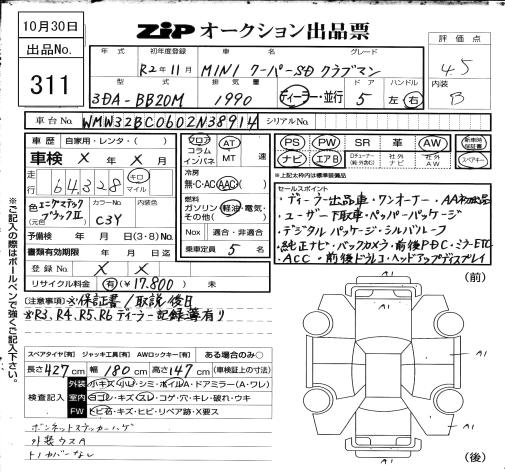 10月30日
ZIP オークション出品票
出品No.
311
年式 初年度登録 車名 グレード
R2年11月 MINI クーパーSD クラブマン
型式 排気量 ドア ハンドル
3DA-BB20M 1990 ディーラー・並行 5 左 右
評価点
4.5
内装
B
車台No. WMW32BC0602N38914 シリアルNo.
車歴 自家用・レンタ・( )
車検 X 年 X 月
走行 64,328 キロ マイル
色 エニグマティックブラックII (元色) カラーNo. C3Y 内装色
予備検 年 月 日(3・8)No.
書類有効期限 年 月 日迄
登録No. X X
リサイクル料金 有(¥17,800) 未
フロア コラム インパネ AT MT 速
冷房 無・C・AC(AAC)
燃料 ガソリン・軽油・電気・その他( )
Nox 適合・非適合
乗車定員 5 名
PS PW SR 革 AW 新車時保証書
ナビ エアB Dチューナー 社外ナビ 社外AW スペアキー
※上記太枠内は標準装備品
セールスポイント
・ディーラー出品車・ワンオーナー・AA初出品
・ユーザー下取車・ペッパーパッケージ
・デジタルパッケージ・シルバールーフ
・純正ナビ・バックカメラ・前後PDC・ミラーETC
・ACC・前後ドラレコ・ヘッドアップディスプレイ
[注意事項]※保証書/取説後日
※R3、R4、R5、R6 ディーラー記録簿有り
スペアタイヤ[有] ジャッキ工具[有] AWロックキー[有] ある場合のみ○
長さ427cm 幅180cm 高さ147cm (車検証上の寸法)
検査記入 外装 小キズ・小U・シミ・ホイルA・ドアミラー(A・ワレ)
室内 ヨゴレ・キズ・スレ・コゲ・穴・キレ・破れ・ウキ
FW トビ石・キズ・ヒビ・リペア跡・X要ス
ボンネットステッカーハゲ
外装ウスA
トノカバーなし
※ご記入の際はボールペンで強くご記入下さい。
(前)
A1
A1
A1
A1
A1
(後)